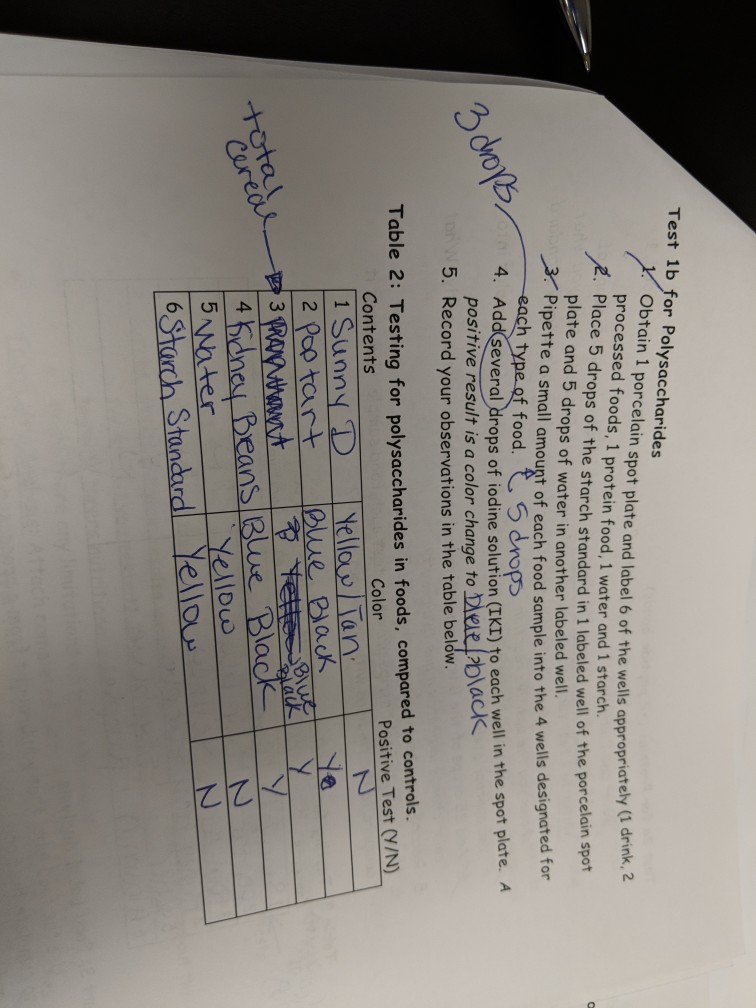 Test 1b for Polysaccharides
1. Obtain 1 porcelain spot plate and label 6 of the wells appropriately (1 drink, 2
processed foods, 1 protein food, 1 water and 1 starch.
2. Place 5 drops of the starch standard in 1 labeled well of the porcelain spot
plate and 5 drops of water in another labeled well.
3. Pipette a small amount of each food sample into the 4 wells designated for
each type of food. 5 drops
3 drops
4. Add several drops of iodine solution (IKI) to each well in the spot plate. A
positive result is a color change to black
5. Record your observations in the table below.
Table 2: Testing for polysaccharides in foods, compared to controls.
Contents Color Positive Test (Y/N)
1 Sunny D Yellow/Tan N
2 Pop tart Blue Black Y
total cereal
3 Yellow Blue Black Y
4 Kidney Beans Blue Black Y
5 Water Yellow N
6 Starch Standard Yellow N